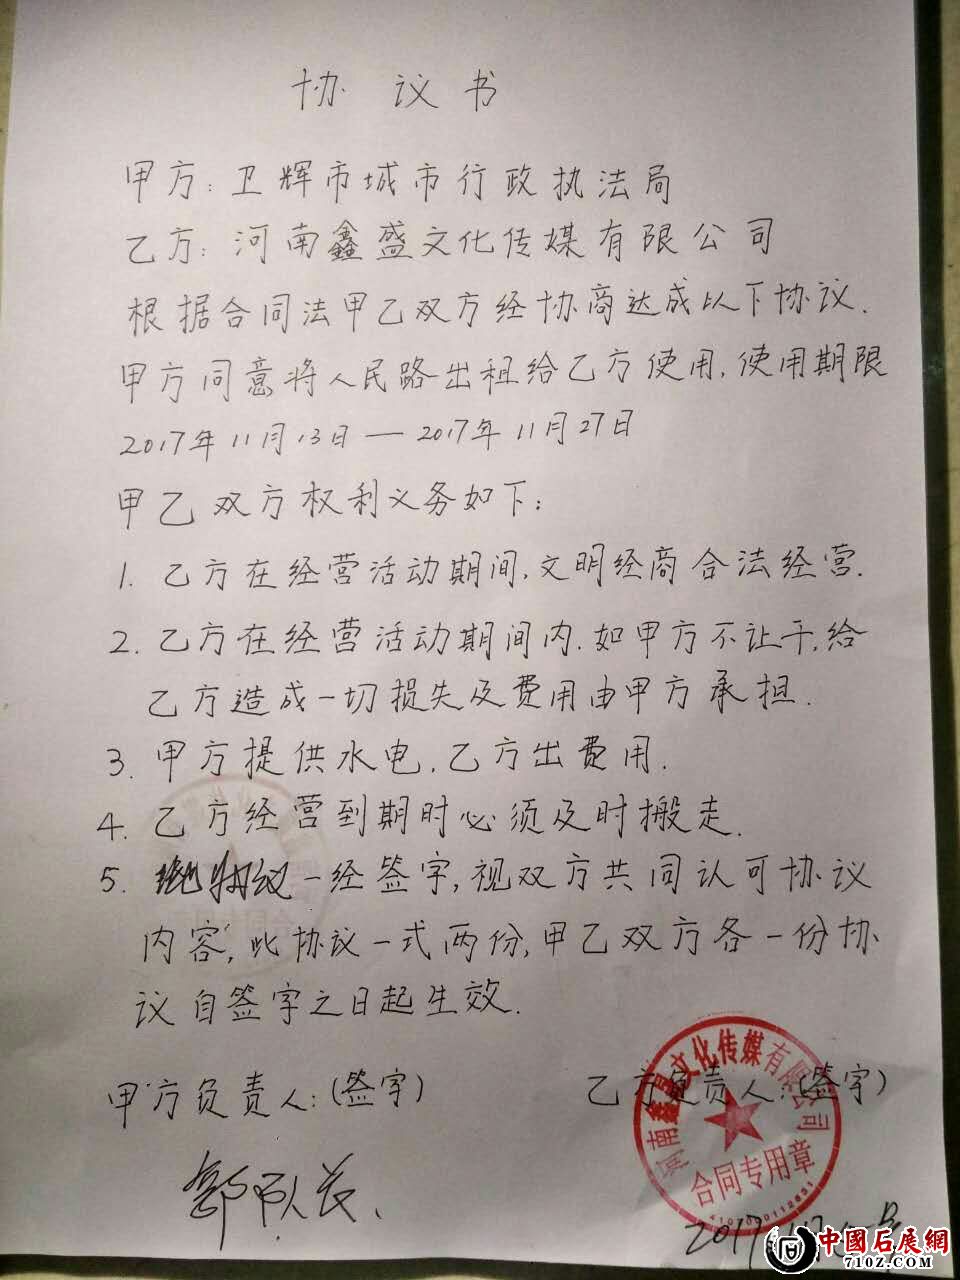 协议书
甲方:卫辉市城市行政执法局
乙方:河南鑫盛文化传媒有限公司
根据合同法甲乙双方经协商达成以下协议.
甲方同意将人民路出租给乙方使用,使用期限
2017年11月13日—2017年11月27日
甲乙双方权利义务如下:
1. 乙方在经营活动期间,文明经商合法经营.
2. 乙方在经营活动期间内.如甲方不让干,给
乙方造成一切损失及费用由甲方承担.
3. 甲方提供水电,乙方出费用.
4. 乙方经营到期时必须及时搬走.
5. 一经签字,视双方共同认可协议
内容,此协议一式两份,甲乙双方各一份协
议自签字之日起生效.
甲方负责人:(签字)
乙方负责人:(签字)
队长.
河南鑫 文化传媒有限公司
合同专用章
2017
中國石展網
710Z.COM